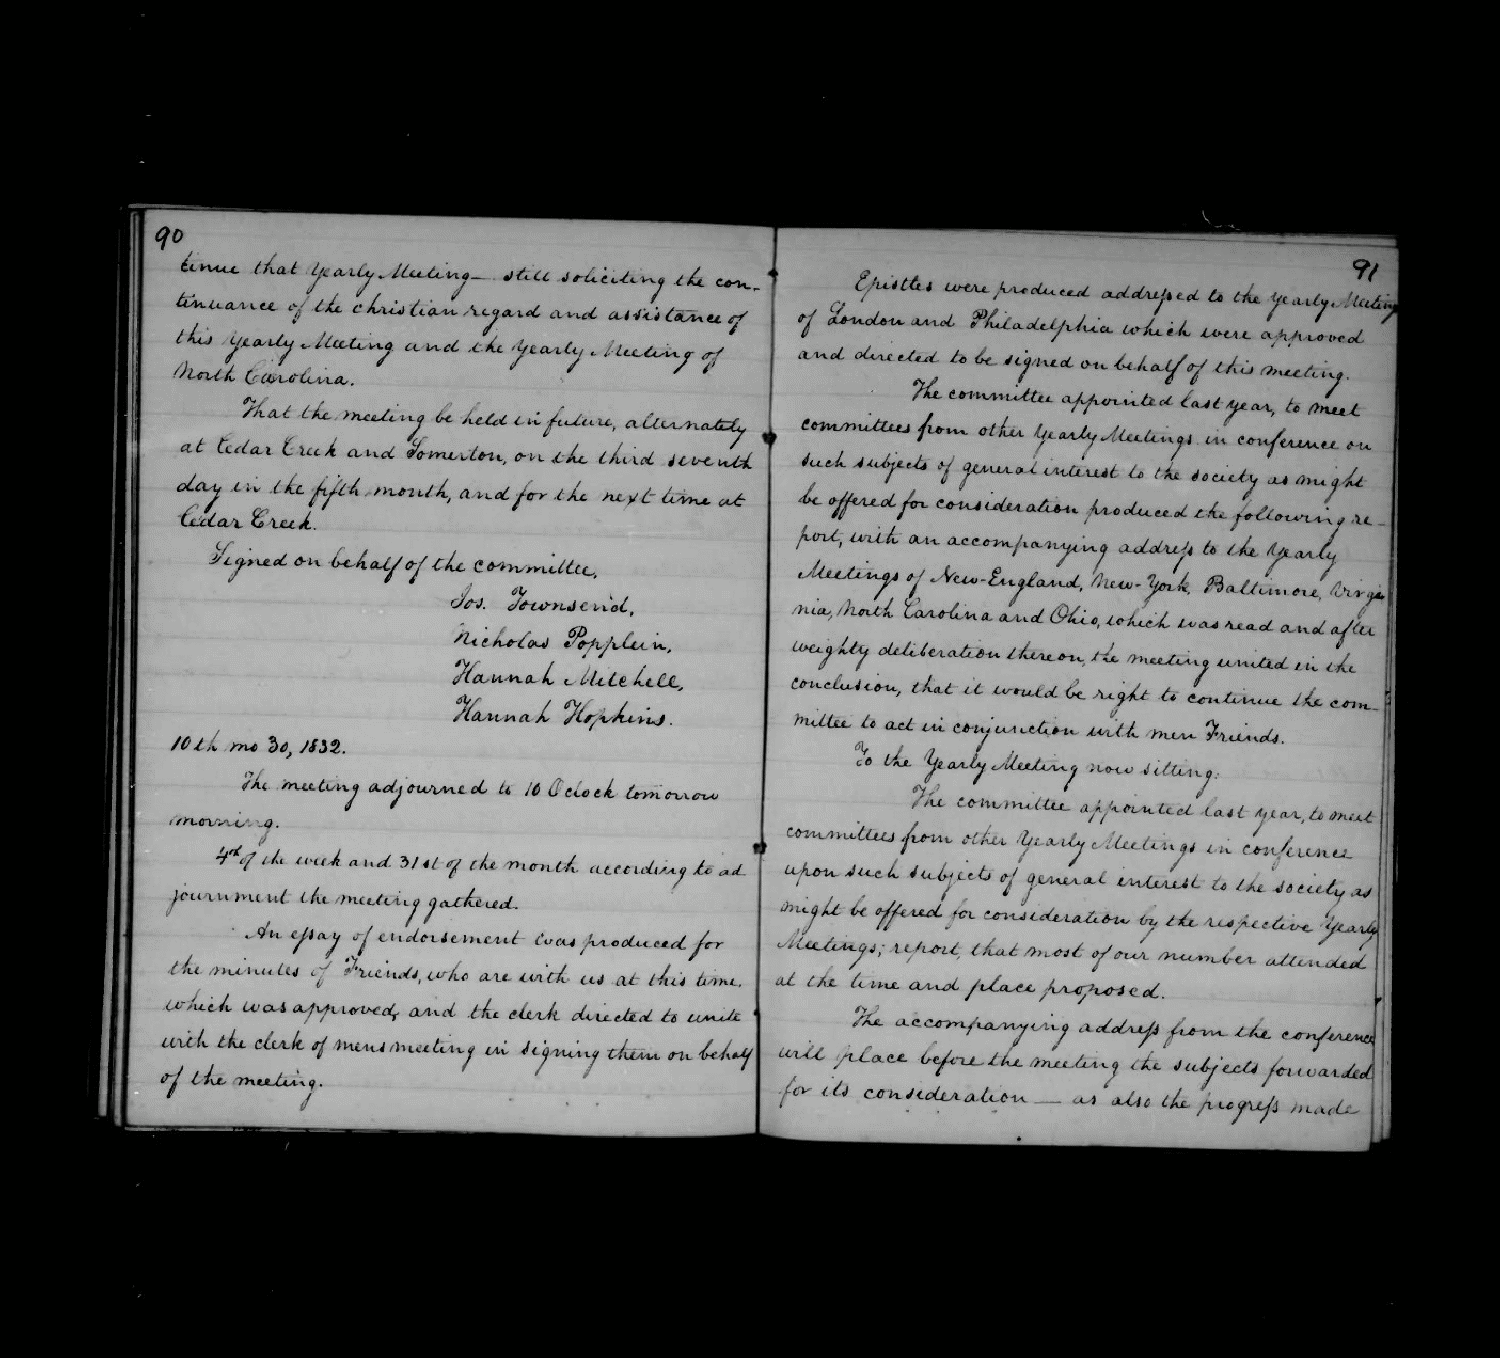 90
tinue that Yearly Meeting — still soliciting the con-
tinuance of the christian regard and assistance of
this Yearly Meeting and the Yearly Meeting of
North Carolina.
That the meeting be held in future, alternately
at Cedar Creek and Somerton, on the third seventh
day in the fifth month, and for the next time at
Cedar Creek.
Signed on behalf of the committee,
Jos. Townsend,
Nicholas Popplein,
Hannah Mitchell,
Hannah Hopkins.
10th mo 30, 1832.
The meeting adjourned to 10 Oclock tomorrow
morning.
4th of the week and 31st of the month according to ad
journment the meeting gathered.
An essay of endorsement was produced for
the minutes of Friends, who are with us at this time,
which was approved, and the clerk directed to unite
with the clerk of mens meeting in signing them on behalf
of the meeting.
91
Epistles were produced addressed to the Yearly Meeting
of London and Philadelphia which were approved
and directed to be signed on behalf of this meeting.
The committee appointed last year, to meet
committees from other Yearly Meetings in conference on
such subjects of general interest to the society as might
be offered for consideration produced the following re-
port, with an accompanying address to the Yearly
Meetings of New-England, New-York, Baltimore, Virgi
nia, North Carolina and Ohio, which was read and after
weighty deliberation thereon, the meeting united in the
conclusion, that it would be right to continue the com-
mittee to act in conjunction with men Friends.
To the Yearly Meeting now sitting:
The committee appointed last year, to meet
committees from other Yearly Meetings in conference
upon such subjects of general interest to the society as
might be offered for consideration by the respective Yearly
Meetings; report, that most of our number attended
at the time and place proposed.
The accompanying address from the conference
will place before the meeting the subjects forwarded
for its consideration — as also the progress made